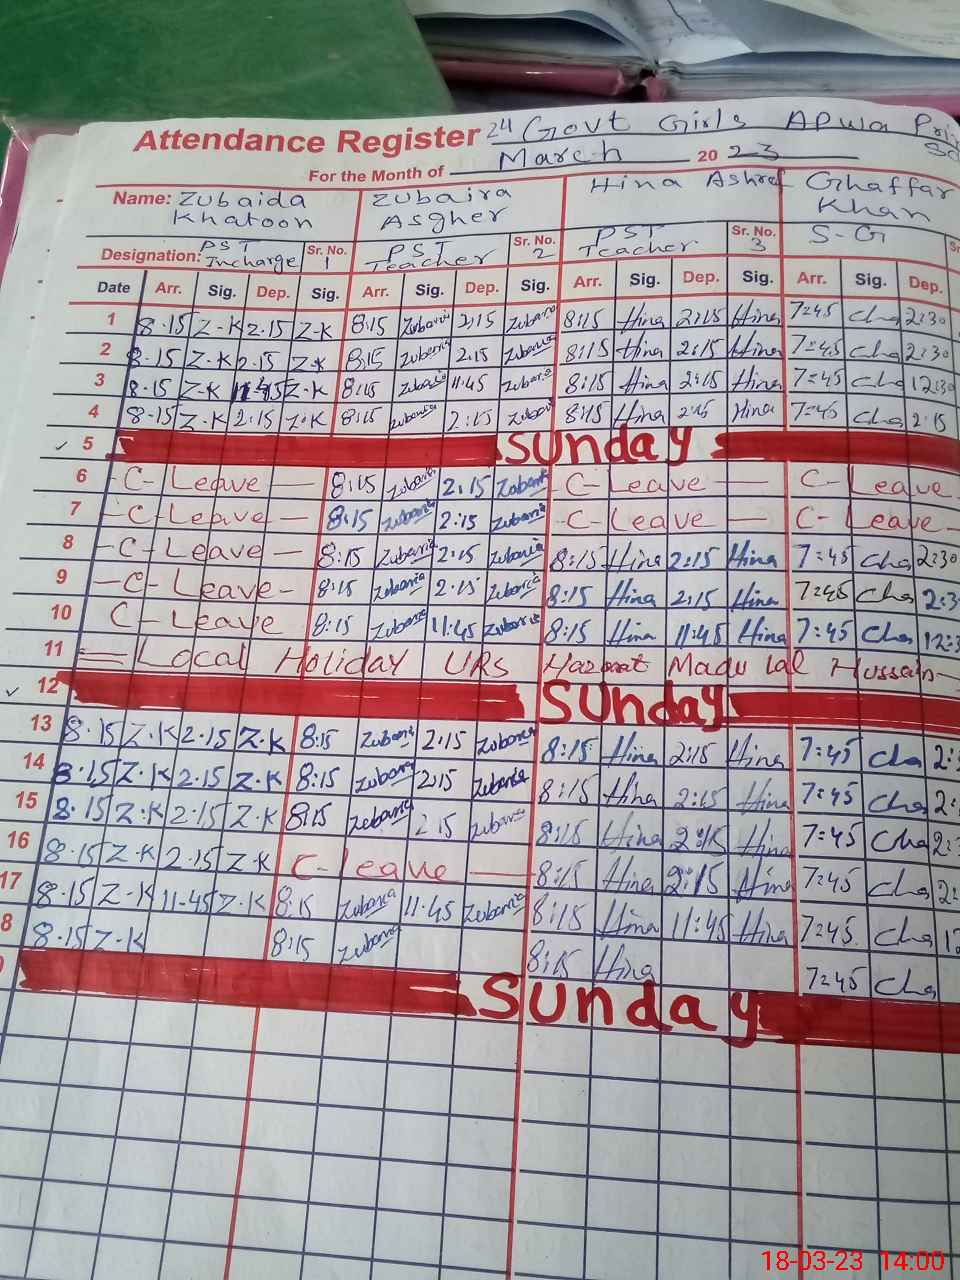 Attendance Register 24 Govt Girls APWA
For the Month of March 2023
Name: Zubaida Khatoon Zubaira Asgher Hina Ashref Ghaffar Khan
Designation: PST Incharge Sr. No. 1 PST Teacher Sr. No. 2 PST Teacher Sr. No. 3 S-G
Date Arr. Sig. Dep. Sig. Arr. Sig. Dep. Sig. Arr. Sig. Dep. Sig. Arr. Sig. Dep.
1 8.15 Z-K 2.15 Z-K 8:15 Zubaria 2:15 Zubaria 8:15 Hina 2:15 Hina 7=45 Cha 2:30
2 8.15 Z-K 2.15 Z-K 8:15 Zubaria 2.15 Zubaria 8:15 Hina 2:15 Hina 7=45 Cha 2:30
3 8.15 Z-K 11.45 Z-K 8:15 Zubaria 11:45 Zubaria 8:15 Hina 2:15 Hina 7=45 Cha 12:30
4 8.15 Z-K 2.15 Z.K 8:15 Zubaria 2:15 Zubari 8:15 Hina 2:15 Hina 7=45 Cha 2:15
5 Sunday
6 - C- Leave - 8:15 Zubaria 2:15 Zubaria - C- Leave - C- Leave
7 - C- Leave - 8:15 Zubaria 2:15 Zubaria - C- Leave - C- Leave
8 - C- Leave - 8:15 Zubaria 2:15 Zubaria 8:15 Hina 2:15 Hina 7=45 Cha 2:30
9 - C- Leave - 8:15 Zubaria 2:15 Zubaria 8:15 Hina 2:15 Hina 7=45 Cha 2:3
10 C- Leave 8:15 Zubaria 11:45 Zubaria 8:15 Hina 11:45 Hina 7=45 Cha 12:3
11 = Local Holiday URs Hazmat Madu lal Hussain -
12 Sunday
13 8.15 Z.K 2.15 Z.K 8:15 Zubaria 2:15 Zubaria 8:15 Hina 2:15 Hina 7=45 Cha 2:
14 8.15 Z.K 2.15 Z.K 8:15 Zubaria 2:15 Zubaria 8:15 Hina 2:15 Hina 7=45 Cha 2:
15 8.15 Z.K 2.15 Z.K 8:15 Zubaria 2 15 Zubaria 8:15 Hina 2:15 Hina 7=45 Cha 2:
16 8.15 Z-K 2.15 Z.K C- Leave 8:15 Hina 2:15 Hina 7=45 Cha 2:
17 8.15 Z-K 11-45 Z.K 8:15 Zubaria 11.45 Zubaria 8:15 Hina 11:45 Hina 7=45 Cha 12
8 8.15 Z-K 8:15 Zubaria 8:15 Hina 7=45 Cha
Sunday
18-03-23 14:00